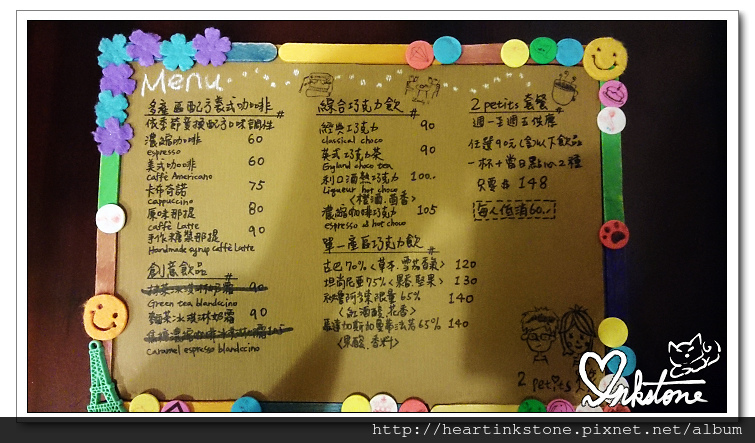 Menu
多產區配方義式咖啡 #
依季節替換配方口味調性
濃縮咖啡 60
espresso
美式咖啡 60
Caffè Americano
卡布奇諾 75
Cappuccino
原味那提 80
Caffè Latte
手作糖漿那提 90
Handmade syrup caffè Latte
創意飲品 #
抹茶冰淇淋奶霜 90
Green tea blandccino
麵茶冰淇淋奶霜 90
焦糖濃縮咖啡冰淇淋霜 105
Caramel espresso blandccino
綜合巧克力飲 #
經典巧克力 90
classical choco
英式巧克力茶 90
England choco tea
利口酒熱巧克力 100..
Liqueur hot choco
<橙酒.茴香>
濃縮咖啡巧克力 105
espresso od hot choco
單一產區巧克力飲 #
古巴70%<草本.雪茄香氣> 120
坦尚尼亞75%<果香.堅果> 130
限量65% 140
酒酸.花香>
馬達加斯加 65% 140
<果酸.香料>
2 petits 套餐 #
週一至週五供應
任選90元(含)以下飲品
一杯+當日點心2種
只要$148
每人低消60..
2 petits
Inkstone
http://heartinkstone.pixnet.net/album